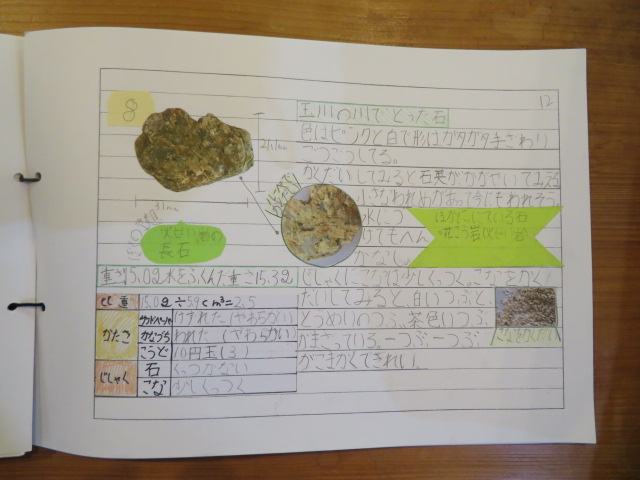 8
12
玉川の川でとった石
色はピンクと白で形はガタガタ手ざわり
ごつごつしてる。
かくだいしてみると石英がかがやいてみえる
小さなわれめがあって今にもわれそう
水につ
けてもへん
かなし。
じしゃくにこなは少しくっつく。こなをかく
だいしてみると、白いつぶと、
とうめいのつぶ、茶色いつぶ
がまざっている。一つぶ一つぶ
がこまかくてきれい。
31mm
長石
ほかににている石
重さ15.0g水をふくんだ重さ15.3g
ひ重
15.0g÷5.9cm³=2.5
かたさ
サンドペーパー
けずれた(やわらかい)
かなづち
われた(やわらかい)
こうど
10円玉(3)
じしゃく
石
くっつかない
こな
少しくっつく
こなをかくだい